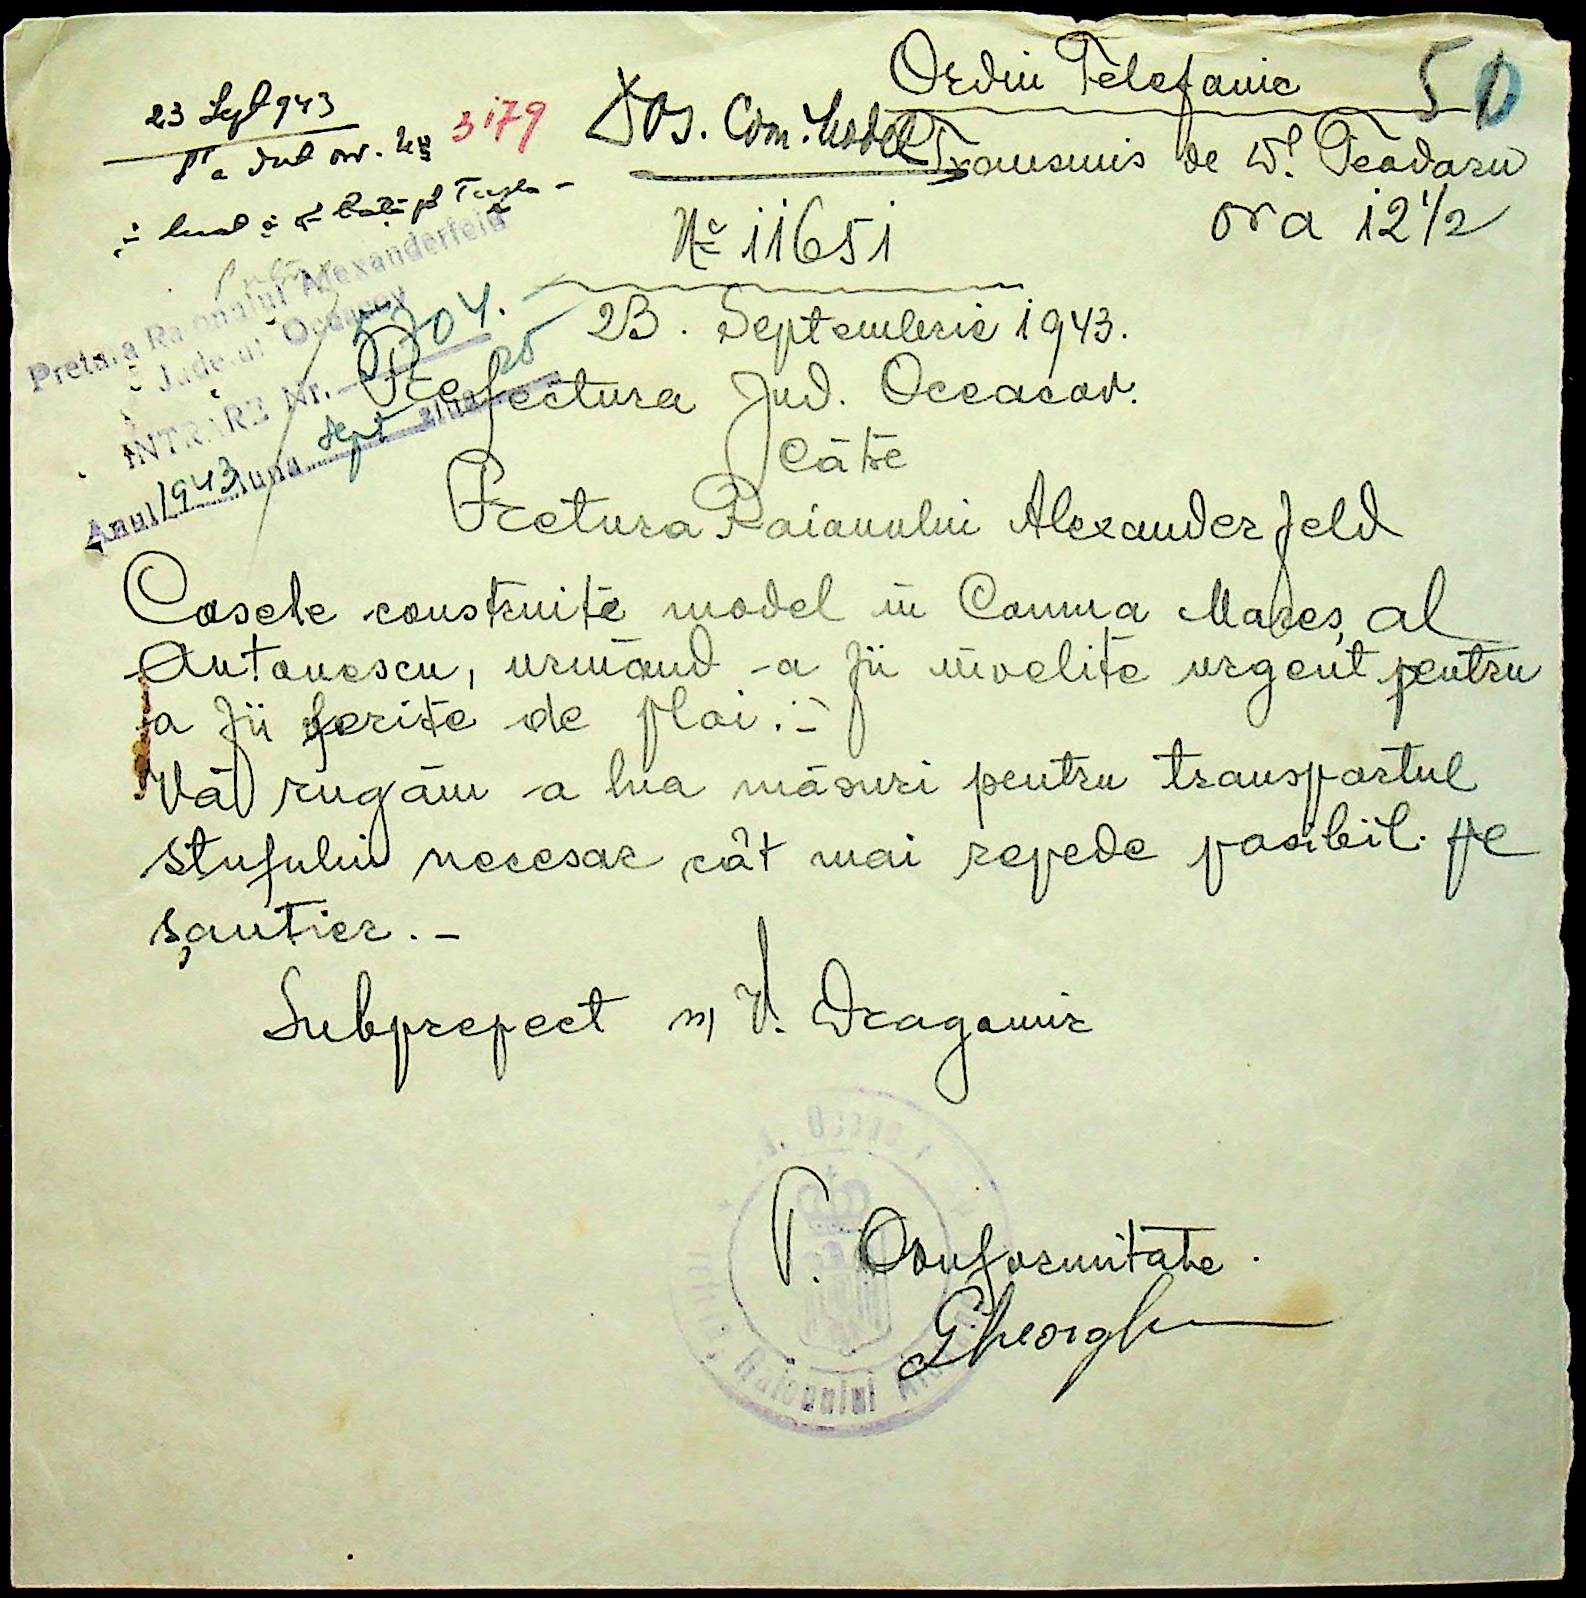 Ordin Telefonic
50
23 Sept 943
3179
Dos. Com. Model
Transmis de Dl. Teodoru
ora 12 1/2
№ 11651
Pretura Raionului Alexanderfeld
Judetul Oceacov
INTRARE Nr. 5704.
Anul 1943 luna sept ziua 25
23. Septembrie 1943.
Prefectura Jud. Oceacov.
Cãtre
Pretura Raionului Alexanderfeld
Casele construite model în Comuna Mareș al
Antonescu, urmând a fi învelite urgent pentru
a fi ferite de ploi.-
Vã rugãm a lua mãsuri pentru transportul
stufului necesar cât mai repede posibil pe
șantier.-
Subprefect ss V. Dragomir
P. Conformitate.
Gheorgh
Raionului